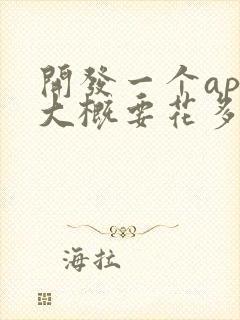 開發一个ap
大概要花多
海拉